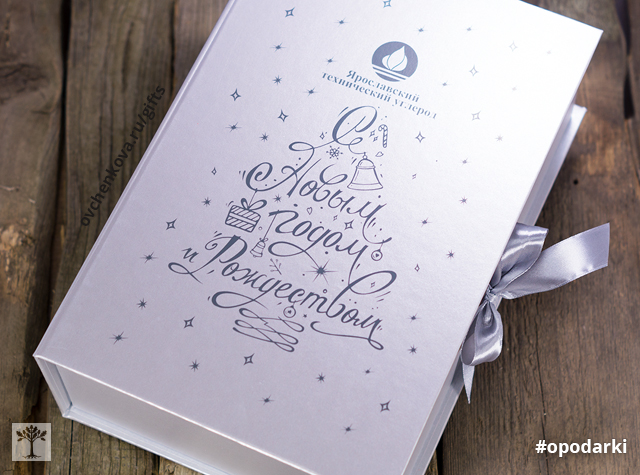 Ярославский
технический углерод
С
Новым
годом
и Рождеством
ovchenkova.ru/gifts
#opodarki